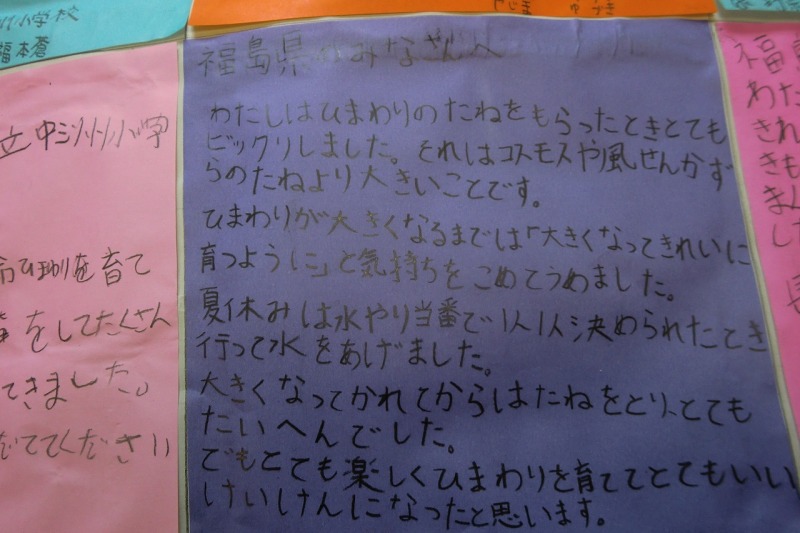 小学校
福本蒼
立中洲小学
を育て
をしてたくさん
てきました。
だててください
福島県のみなさんへ
わたしはひまわりのたねをもらったときとても
ビックリしました。それはコスモスや風せんかず
らのたねより大きいことです。
ひまわりが大きくなるまでは「大きくなってきれいに
育つように」と気持ちをこめてうめました。
夏休みは水やり当番で1人1人決められたとき
行って水をあげました。
大きくなってかれてからはたねをとり、とても
たいへんでした。
でもとても楽しくひまわりを育ててとてもいい
けいけんになったと思います。
福
わた
きれ
きも
まん
した